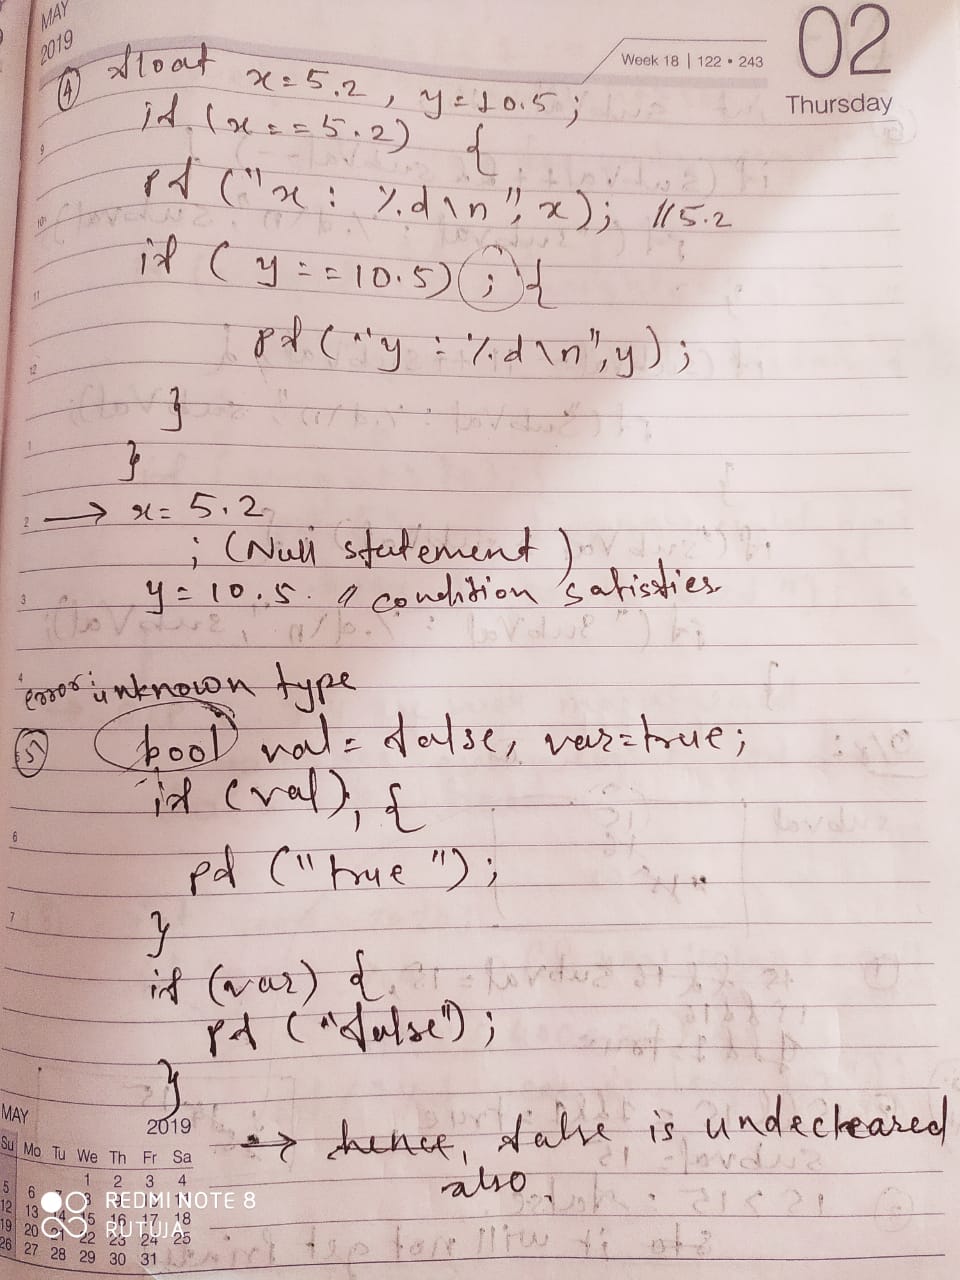 MAY
2019
02
Week 18 | 122 • 243
Thursday
④ float x=5.2, y=10.5;
if (x==5.2) {
pf ("x : %d\n", x); //5.2
if (y==10.5) ; {
pf ("y : %d\n", y);
}
}
→ x= 5.2
; (Null statement)
y= 10.5. // condition satisfies.
error: unknown type
⑤ bool val= false, var=true;
if (val), {
pf ("true");
}
if (var) {
pf ("false");
}
→ hence, false is undecleared
also.
9
10
11
12
1
2
3
4
6
7
MAY 2019
Su Mo Tu We Th Fr Sa
1 2 3 4
5 6 7 8 9 10 11
12 13 14 15 16 17 18
19 20 21 22 23 24 25
26 27 28 29 30 31
REDMI NOTE 8
RUTUJA